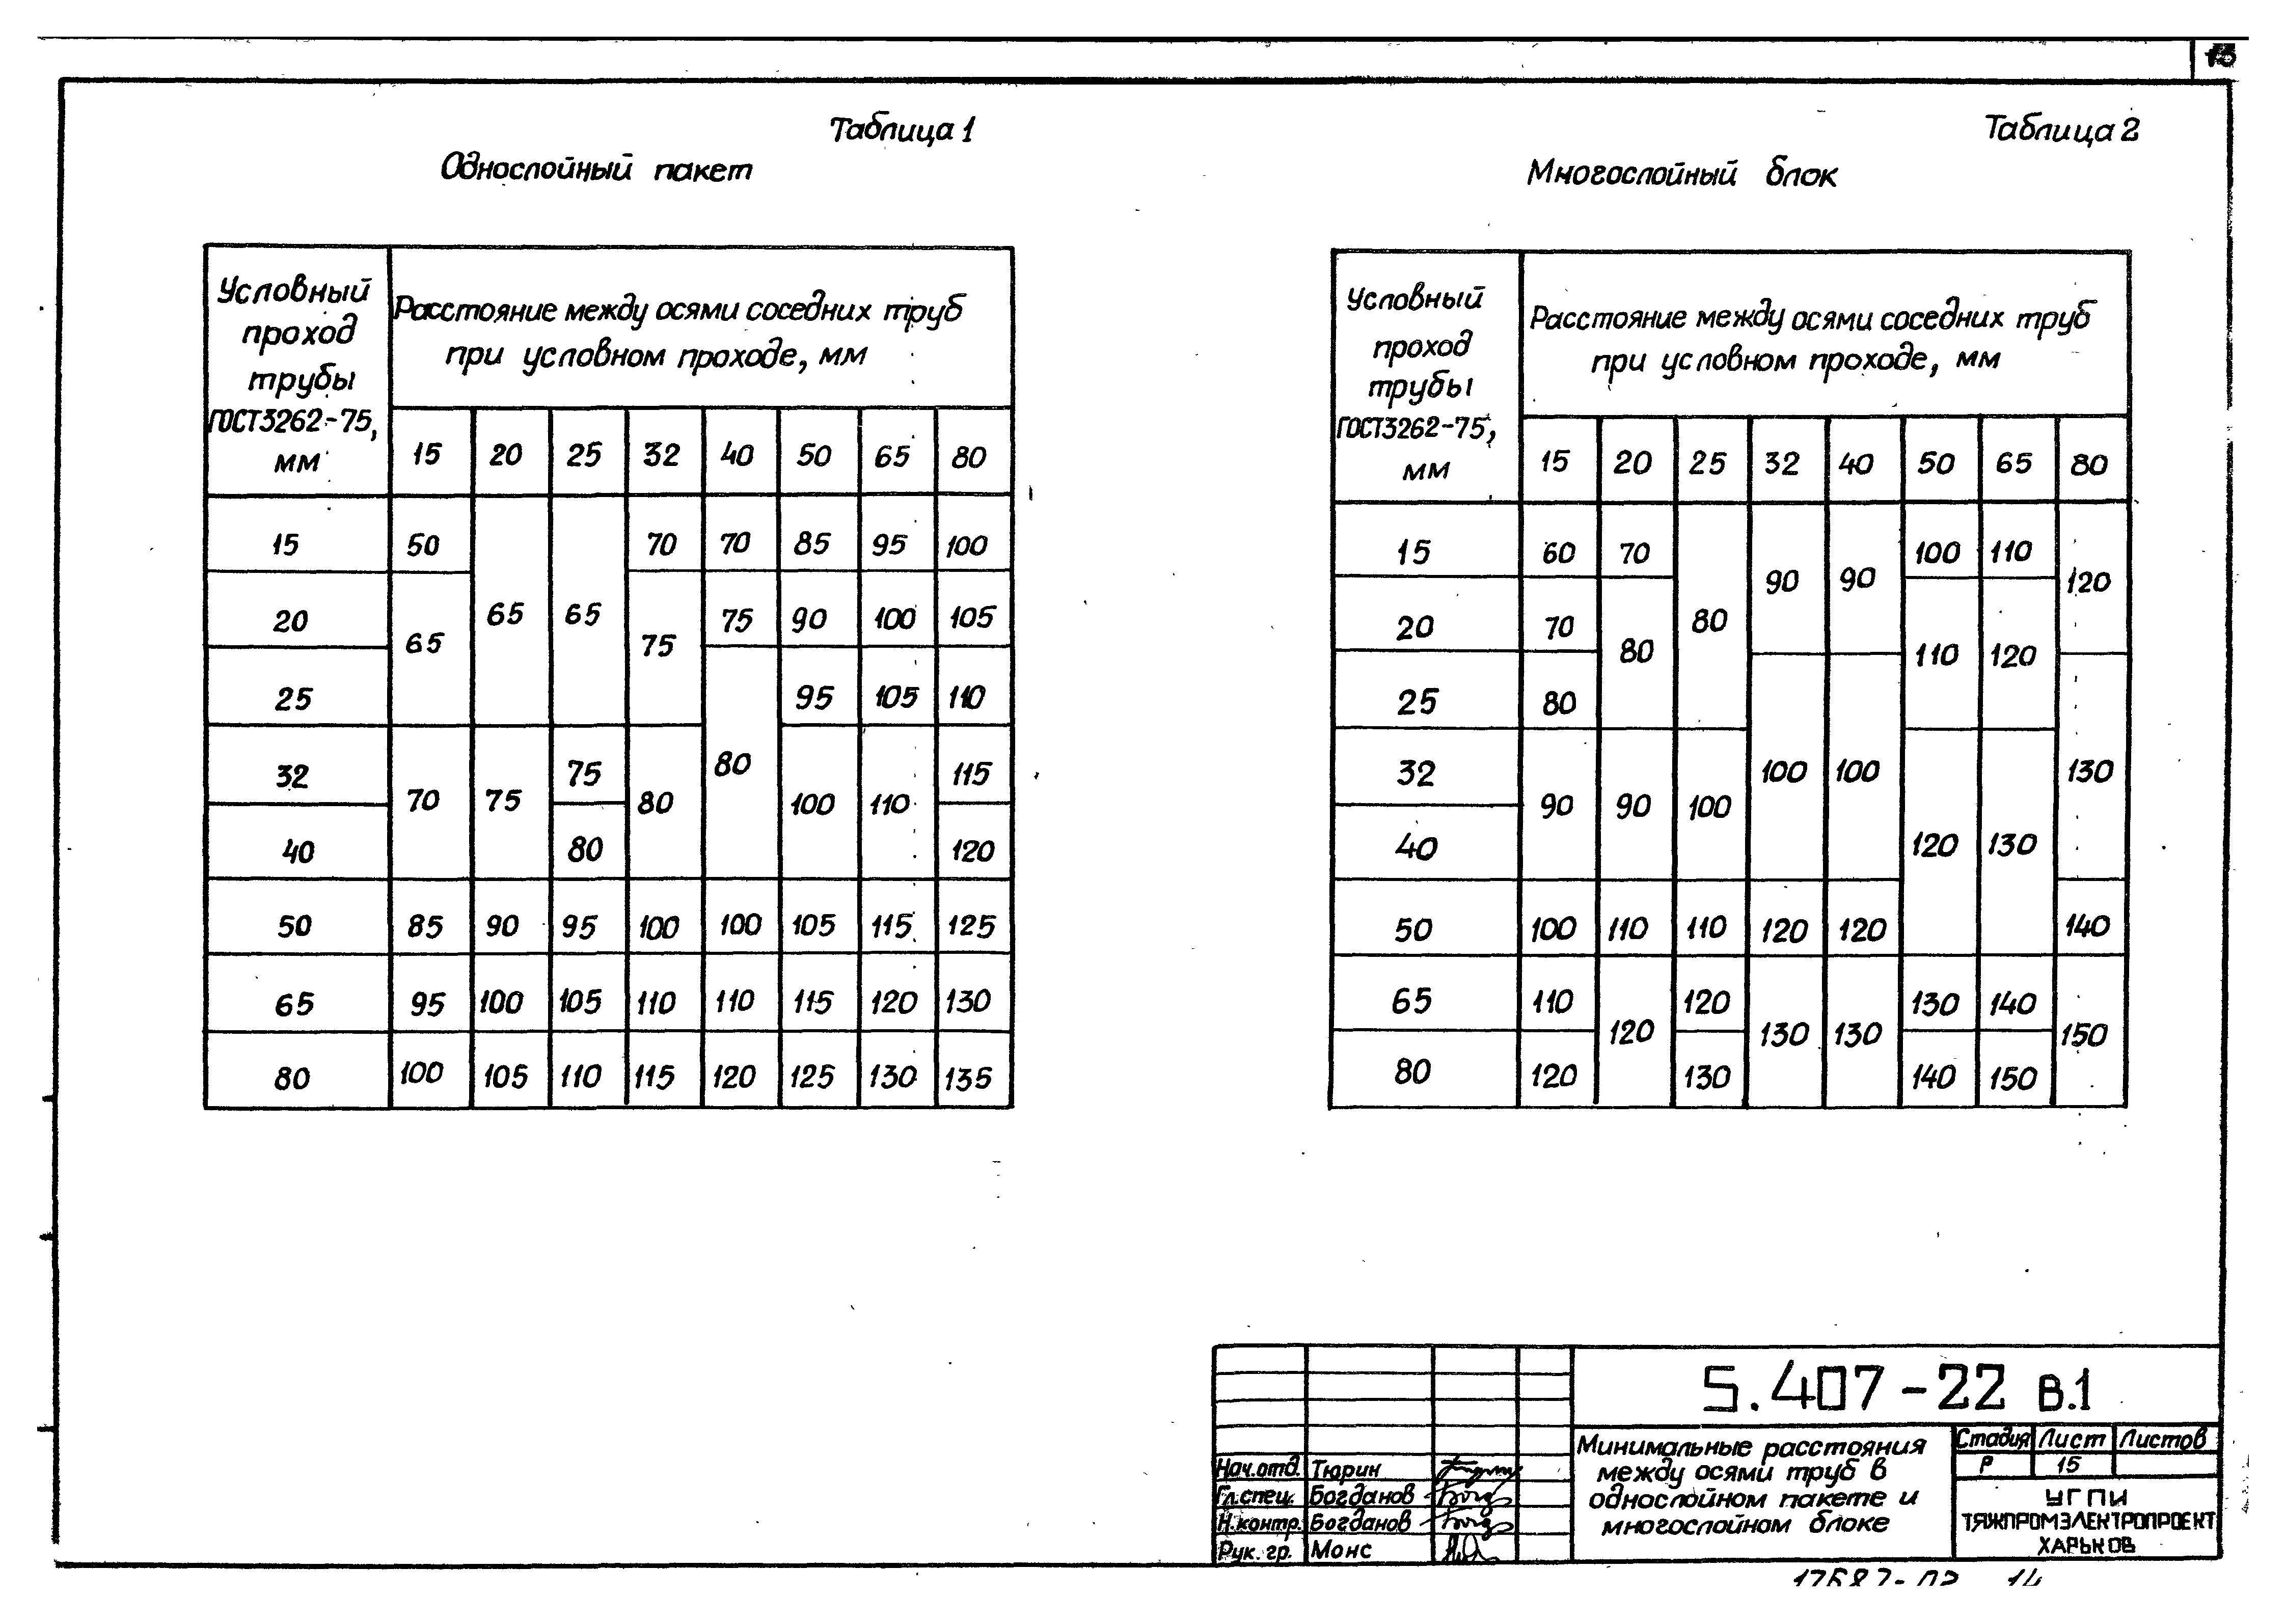 13
Таблица 1
Однослойный пакет
Условный проход трубы ГОСТ3262-75, мм
Расстояние между осями соседних труб
при условном проходе, мм
15 20 25 32 40 50 65 80
15 50 70 70 85 95 100
20 65 65 65 75 75 90 100 105
25 95 105 110
32 70 75 75 80 80 100 110 115
40 80 120
50 85 90 95 100 100 105 115 125
65 95 100 105 110 110 115 120 130
80 100 105 110 115 120 125 130 135
Таблица 2
Многослойный блок
Условный проход трубы ГОСТ3262-75, мм
Расстояние между осями соседних труб
при условном проходе, мм
15 20 25 32 40 50 65 80
15 60 70 90 90 100 110 120
20 70 80 80 110 120
25 80
32 90 90 100 100 100 130
40 120 130
50 100 110 110 120 120 140
65 110 120 120 130 130 130 140 150
80 120 130 140 150
5.407-22 В.1
Нач.отд. Тюрин
Гл.спец. Богданов
Н.контр. Богданов
Рук. гр. Монс
Минимальные расстояния
между осями труб в
однослойном пакете и
многослойном блоке
Стадия Лист Листов
Р 15
УГПИ
ТЯЖПРОМЭЛЕКТРОПРОЕКТ
ХАРЬКОВ
14